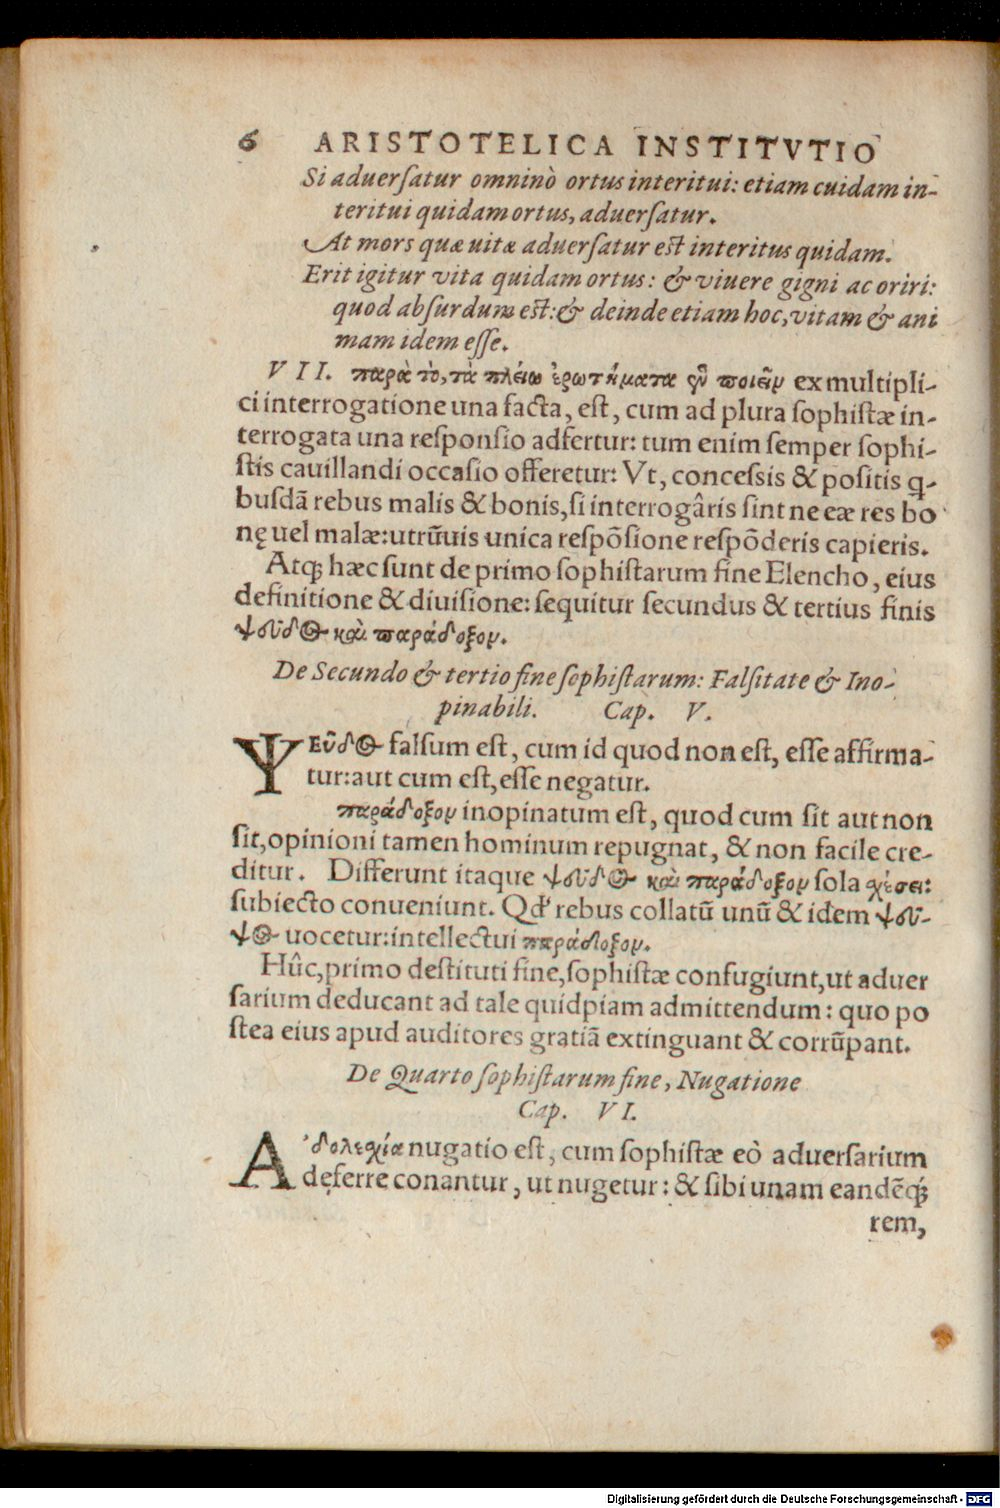 6 ARISTOTELICA INSTITVTIO
Si aduerſatur omninò ortus interitui: etiam cuidam in-
teritui quidam ortus, aduerſatur.
At mors quæ uitæ aduerſatur eſt interitus quidam.
Erit igitur vita quidam ortus: & viuere gigni ac oriri:
quod abſurdum eſt: & deinde etiam hoc, vitam & ani
mam idem eſſe.
VII. παρὰ τὸ, τὰ πλέιω ἐρωτήματα ἓν ποιεῖν ex multipli-
ci interrogatione una facta, eſt, cum ad plura ſophiſtæ in-
terrogata una reſponſio adfertur: tum enim ſemper ſophi-
ſtis cauillandi occaſio offeretur: Vt, conceſsis & poſitis q-
buſdã rebus malis & bonis, ſi interrogâris ſint ne eæ res bo
nę uel malæ: utrũuis unica reſpõſione reſpõderis capieris.
Atq; hæc ſunt de primo ſophiſtarum fine Elencho, eius
definitione & diuiſione: ſequitur ſecundus & tertius finis
ψεῦδος καὶ παράδοξον.
De Secundo & tertio fine ſophiſtarum: Falſitate & Ino-
pinabili. Cap. V.
ΨΕῦδος falſum eſt, cum id quod non eſt, eſſe affirma-
tur: aut cum eſt, eſſe negatur.
παράδοξον inopinatum eſt, quod cum ſit aut non
ſit, opinioni tamen hominum repugnat, & non facile cre-
ditur. Differunt itaque ψεῦδος καὶ παράδοξον ſola χέσει:
ſubiecto conueniunt. Qd' rebus collatũ unũ & idem ψεῦ-
ψος uocetur: intellectui παράδοξον.
Hûc, primo deſtituti fine, ſophiſtæ confugiunt, ut aduer
ſarium deducant ad tale quidpiam admittendum: quo po
ſtea eius apud auditores gratiã extinguant & corrũpant.
De Quarto ſophiſtarum fine, Nugatione
Cap. VI.
A'δολεχία nugatio eſt, cum ſophiſtæ eò aduerſarium
deferre conantur, ut nugetur: & ſibi unam eandẽq;
rem,
Digitalisierung gefördert durch die Deutsche Forschungsgemeinschaft - DFG